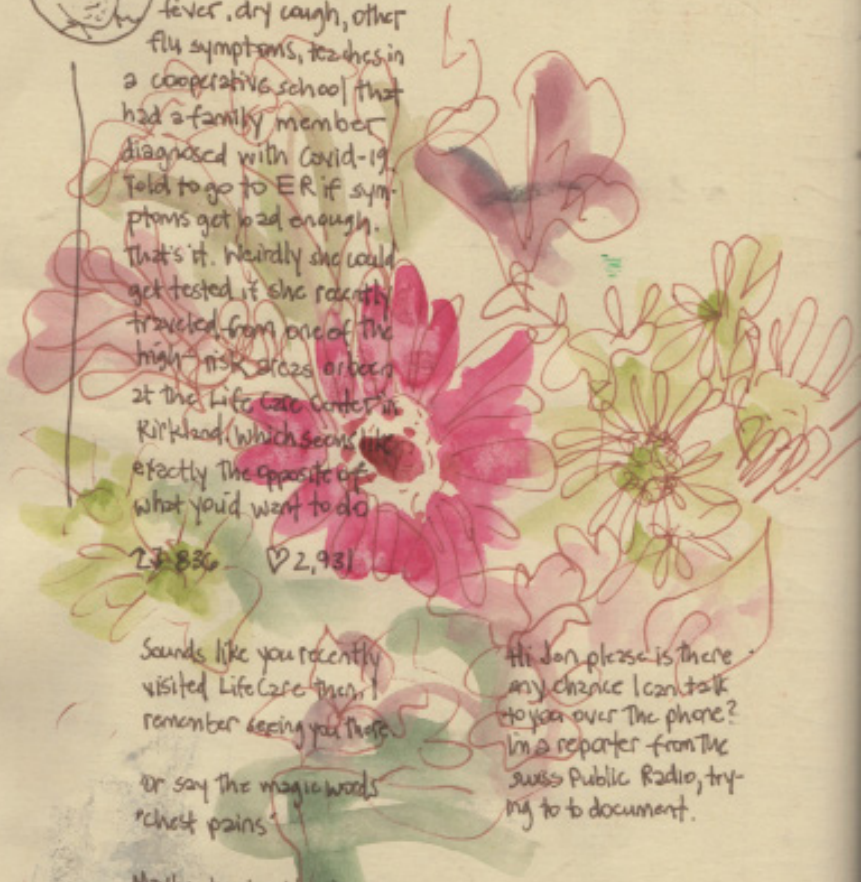 fever, dry cough, other
flu symptoms, teaches in
a cooperative school that
had a family member
diagnosed with Covid-19.
Told to go to ER if sym-
ptoms get bad enough.
That's it. Weirdly she could
get tested if she recently
traveled from one of the
high-risk areas or been
at the Life Care Center in
Kirkland, which seems like
exactly the opposite of
what you'd want to do
836 ♡ 2,931
Sounds like you recently
visited LifeCare then, I
remember seeing you there
Or say the magic words
"chest pains"
Hi Jon please is there
any chance I can talk
to you over the phone?
Im a reporter from the
Swiss Public Radio, try-
ing to to document.